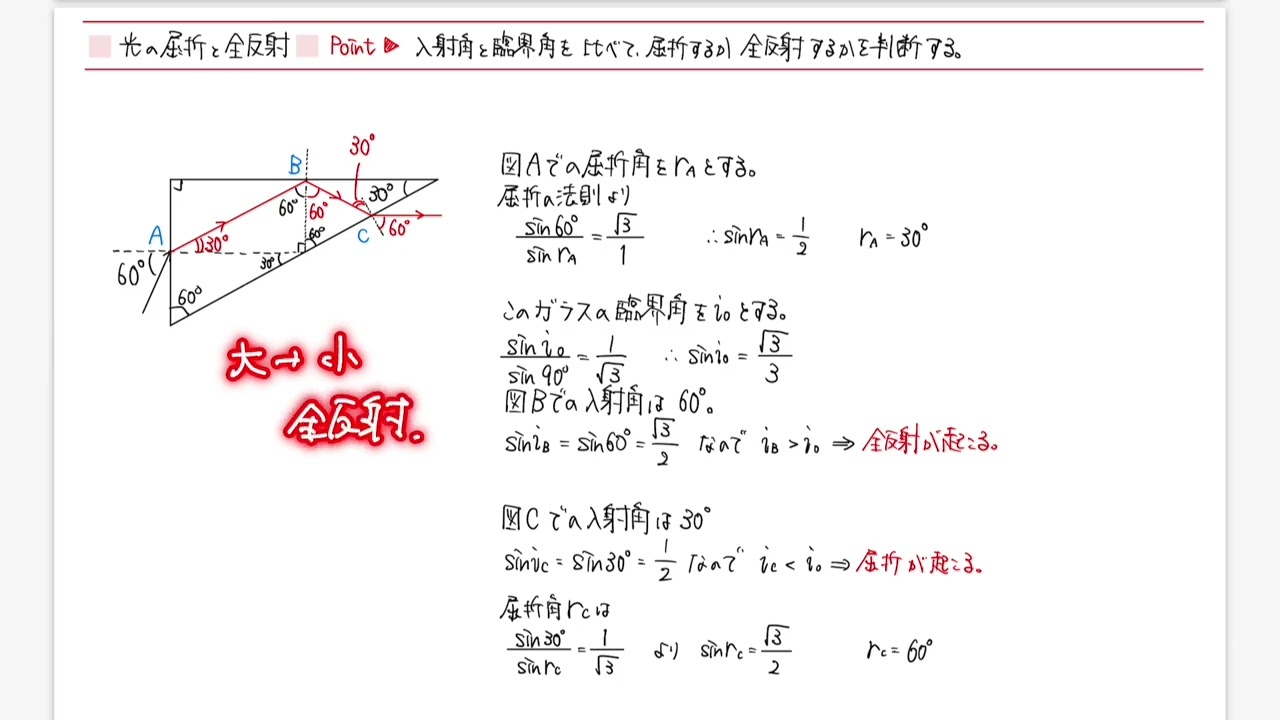 光の屈折と全反射 Point▶ 入射角と臨界角を比べて、屈折するか全反射するかを判断する。
30°
B
30°
60°
60°
A
30°
60°
C
60°
60°
30°
60°
大→小
全反射.
図Aでの屈折角をrAとする。
屈折の法則より
sin60°/sin rA = √3/1 ∴ sin rA = 1/2 rA = 30°
このガラスの臨界角をi₀とする。
sin i₀/sin 90° = 1/√3 ∴ sin i₀ = √3/3
図Bでの入射角は 60°。
sin iB = sin60° = √3/2 なので iB > i₀ ⇒ 全反射が起こる。
図Cでの入射角は 30°
sin ic = sin30° = 1/2 なので ic < i₀ ⇒ 屈折が起こる。
屈折角 rc は
sin30°/sin rc = 1/√3 より sin rc = √3/2 rc = 60°